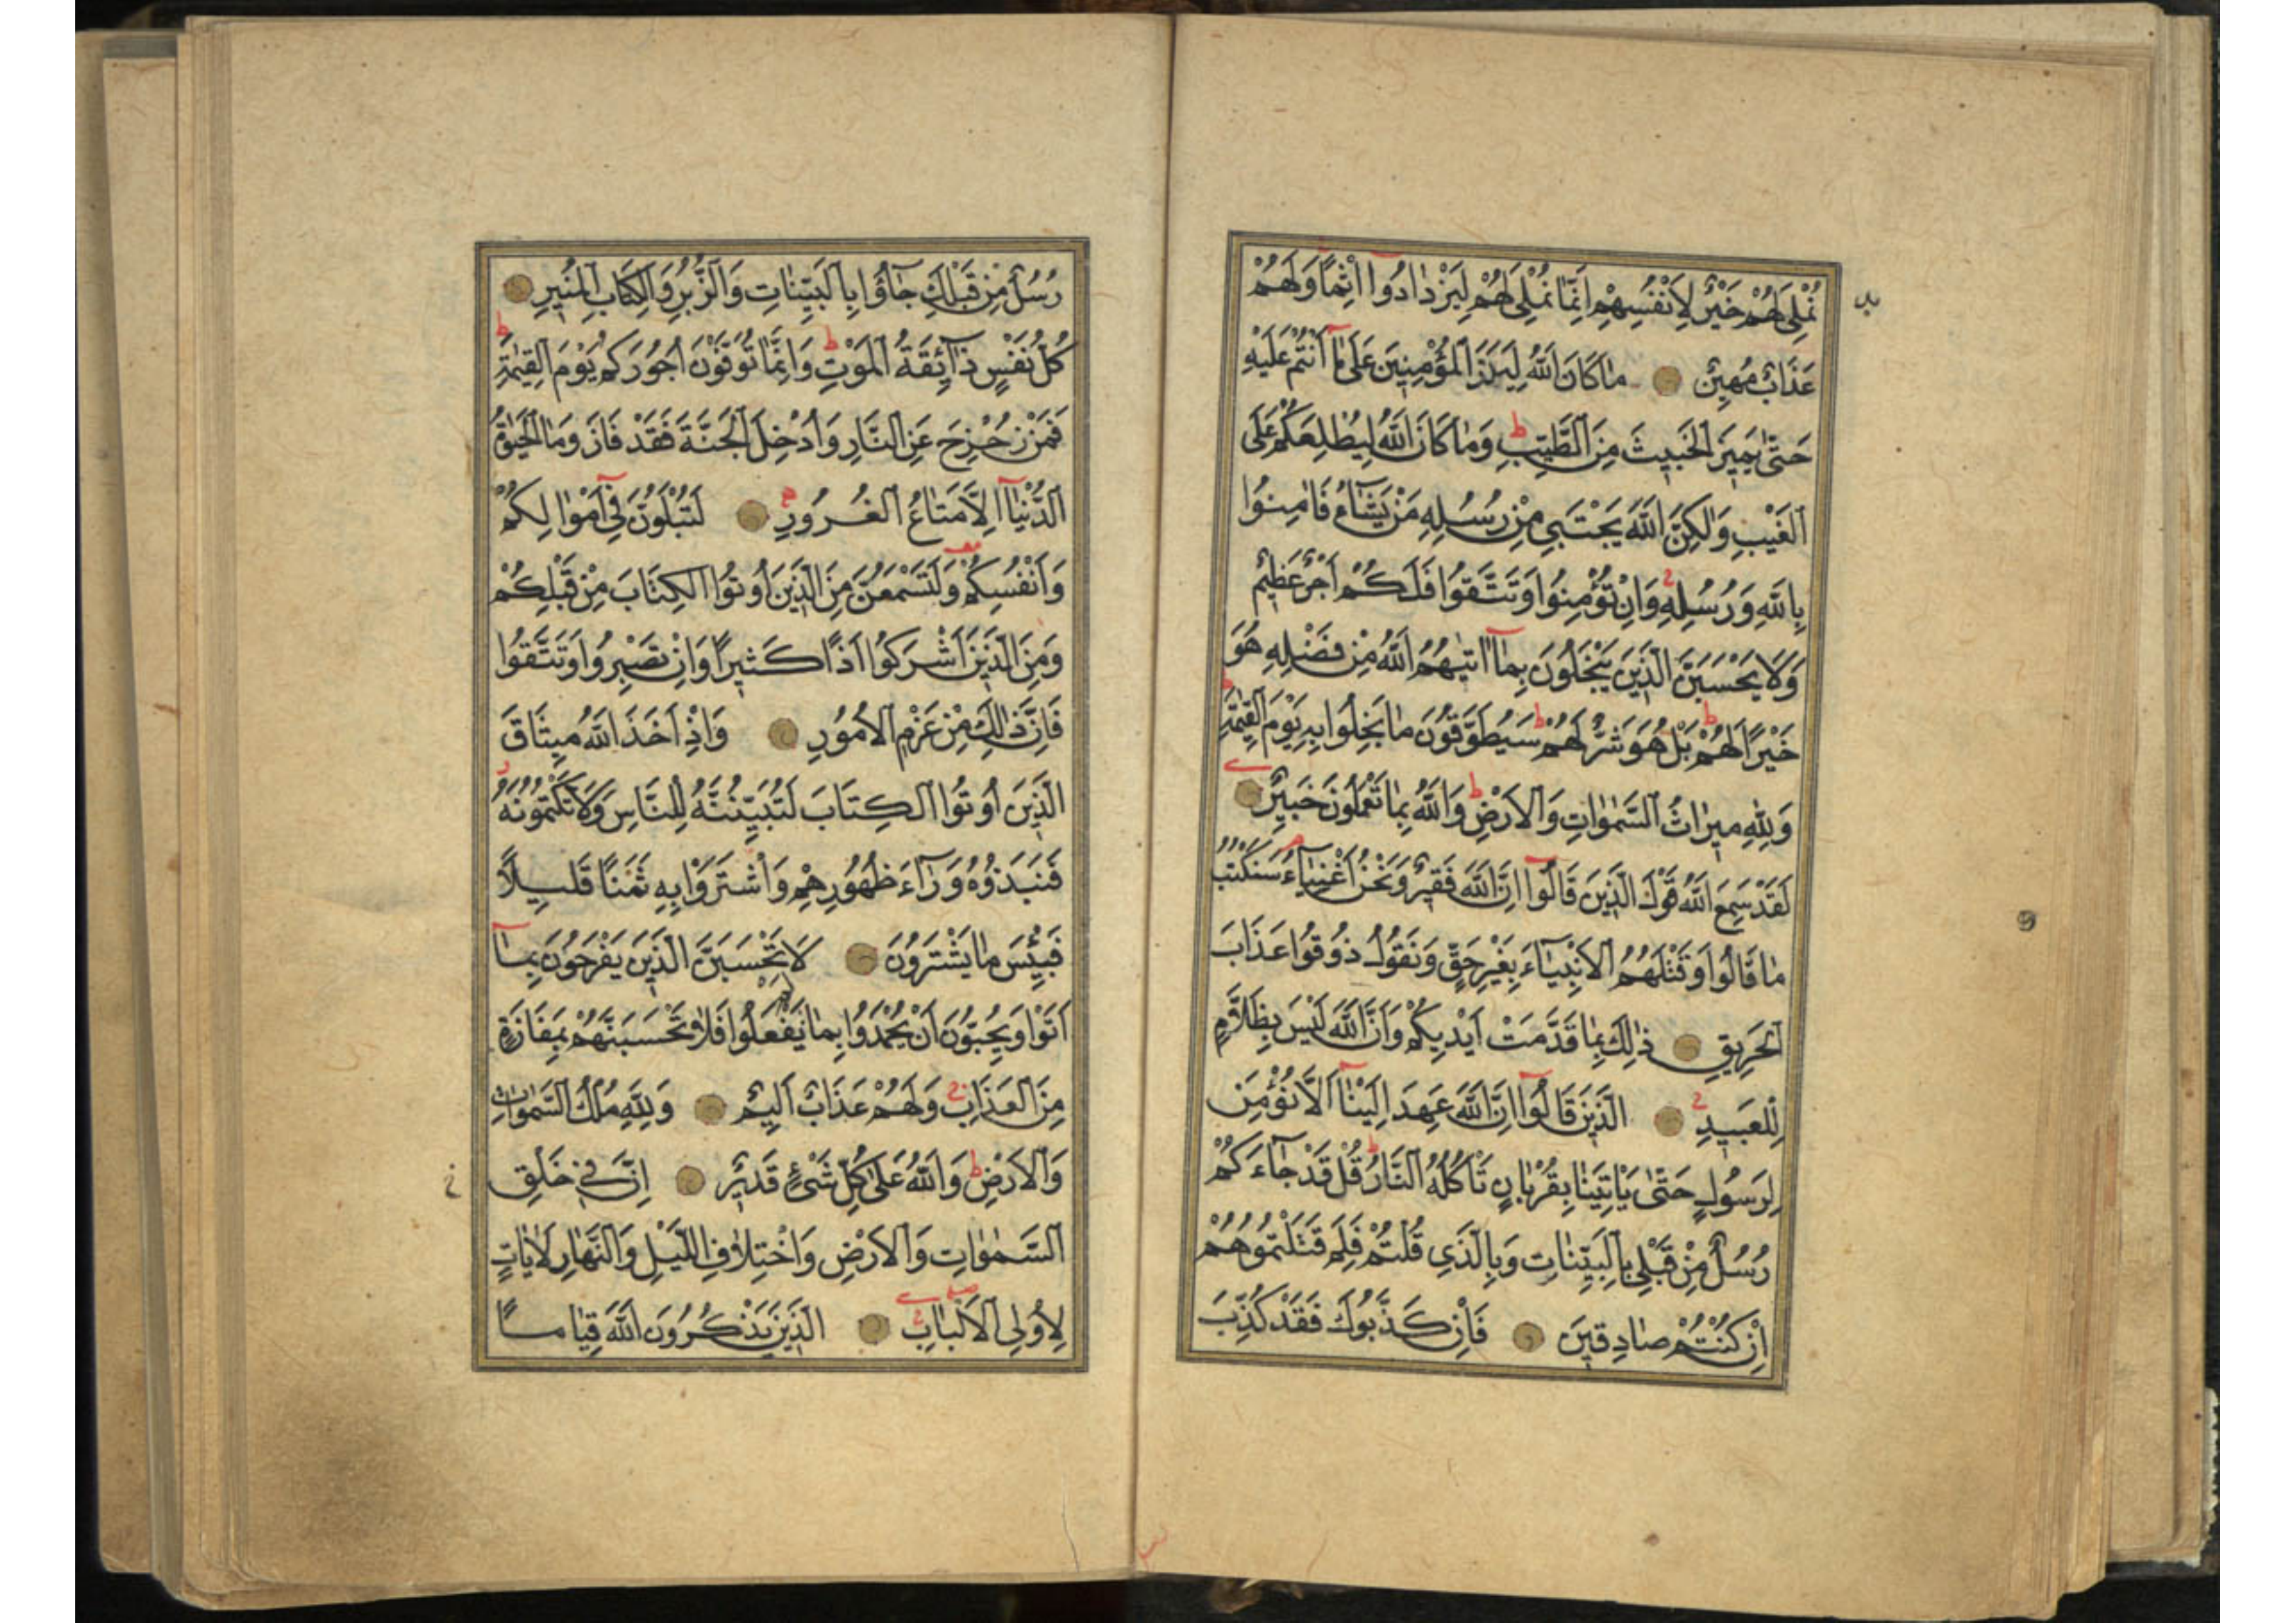 نُمْلِي لَهُمْ خَيْرٌ لِاَنْفُسِهِمْ اِنَّمَا نُمْلِي لَهُمْ لِيَزْدَادُوا اِثْمًا وَلَهُمْ
عَذَابٌ مُهِينٌ مَا كَانَ اللّٰهُ لِيَذَرَ الْمُؤْمِنِينَ عَلٰى مَا اَنْتُمْ عَلَيْهِ
حَتّٰى يَمِيزَ الْخَبِيثَ مِنَ الطَّيِّبِ ط وَمَا كَانَ اللّٰهُ لِيُطْلِعَكُمْ عَلَى
الْغَيْبِ وَلٰكِنَّ اللّٰهَ يَجْتَبِي مِنْ رُسُلِهِ مَنْ يَشَاءُ فَاٰمِنُوا
بِاللّٰهِ وَرُسُلِهِ وَاِنْ تُؤْمِنُوا وَتَتَّقُوا فَلَكُمْ اَجْرٌ عَظِيمٌ
وَلَا يَحْسَبَنَّ الَّذِينَ يَبْخَلُونَ بِمَا اٰتٰيهُمُ اللّٰهُ مِنْ فَضْلِهِ هُوَ
خَيْرًا لَهُمْ ط بَلْ هُوَ شَرٌّ لَهُمْ ط سَيُطَوَّقُونَ مَا بَخِلُوا بِهِ يَوْمَ الْقِيٰمَةِ ط
وَلِلّٰهِ مِيرَاثُ السَّمٰوَاتِ وَالْاَرْضِ ط وَاللّٰهُ بِمَا تَعْمَلُونَ خَبِيرٌ
لَقَدْ سَمِعَ اللّٰهُ قَوْلَ الَّذِينَ قَالُوا اِنَّ اللّٰهَ فَقِيرٌ وَنَحْنُ اَغْنِيَاءُ سَنَكْتُبُ
مَا قَالُوا وَقَتْلَهُمُ الْاَنْبِيَاءَ بِغَيْرِ حَقٍّ وَنَقُولُ ذُوقُوا عَذَابَ
الْحَرِيقِ ذٰلِكَ بِمَا قَدَّمَتْ اَيْدِيكُمْ وَاَنَّ اللّٰهَ لَيْسَ بِظَلَّامٍ
لِلْعَبِيدِ الَّذِينَ قَالُوا اِنَّ اللّٰهَ عَهِدَ اِلَيْنَا اَلَّا نُؤْمِنَ
لِرَسُولٍ حَتّٰى يَاْتِيَنَا بِقُرْبَانٍ تَاْكُلُهُ النَّارُ ط قُلْ قَدْ جَاءَكُمْ
رُسُلٌ مِنْ قَبْلِي بِالْبَيِّنَاتِ وَبِالَّذِي قُلْتُمْ فَلِمَ قَتَلْتُمُوهُمْ
اِنْ كُنْتُمْ صَادِقِينَ فَاِنْ كَذَّبُوكَ فَقَدْ كُذِّبَ
رُسُلٌ مِنْ قَبْلِكَ جَاؤُا بِالْبَيِّنَاتِ وَالزُّبُرِ وَالْكِتَابِ الْمُنِيرِ
كُلُّ نَفْسٍ ذَائِقَةُ الْمَوْتِ ط وَاِنَّمَا تُوَفَّوْنَ اُجُورَكُمْ يَوْمَ الْقِيٰمَةِ ط
فَمَنْ زُحْزِحَ عَنِ النَّارِ وَاُدْخِلَ الْجَنَّةَ فَقَدْ فَازَ وَمَا الْحَيٰوةُ
الدُّنْيَا اِلَّا مَتَاعُ الْغُرُورِ لَتُبْلَوُنَّ فِي اَمْوَالِكُمْ
وَاَنْفُسِكُمْ وَلَتَسْمَعُنَّ مِنَ الَّذِينَ اُوتُوا الْكِتَابَ مِنْ قَبْلِكُمْ
وَمِنَ الَّذِينَ اَشْرَكُوا اَذًا كَثِيرًا وَاِنْ تَصْبِرُوا وَتَتَّقُوا
فَاِنَّ ذٰلِكَ مِنْ عَزْمِ الْاُمُورِ وَاِذْ اَخَذَ اللّٰهُ مِيثَاقَ
الَّذِينَ اُوتُوا الْكِتَابَ لَتُبَيِّنُنَّهُ لِلنَّاسِ وَلَا تَكْتُمُونَهُ
فَنَبَذُوهُ وَرَاءَ ظُهُورِهِمْ وَاشْتَرَوْا بِهِ ثَمَنًا قَلِيلًا
فَبِئْسَ مَا يَشْتَرُونَ لَا تَحْسَبَنَّ الَّذِينَ يَفْرَحُونَ بِمَا
اَتَوْا وَيُحِبُّونَ اَنْ يُحْمَدُوا بِمَا لَمْ يَفْعَلُوا فَلَا تَحْسَبَنَّهُمْ بِمَفَازَةٍ
مِنَ الْعَذَابِ وَلَهُمْ عَذَابٌ اَلِيمٌ وَلِلّٰهِ مُلْكُ السَّمٰوَاتِ
وَالْاَرْضِ ط وَاللّٰهُ عَلٰى كُلِّ شَيْءٍ قَدِيرٌ اِنَّ فِي خَلْقِ
السَّمٰوَاتِ وَالْاَرْضِ وَاخْتِلَافِ الَّيْلِ وَالنَّهَارِ لَاٰيَاتٍ
لِاُولِي الْاَلْبَابِ الَّذِينَ يَذْكُرُونَ اللّٰهَ قِيَامًا